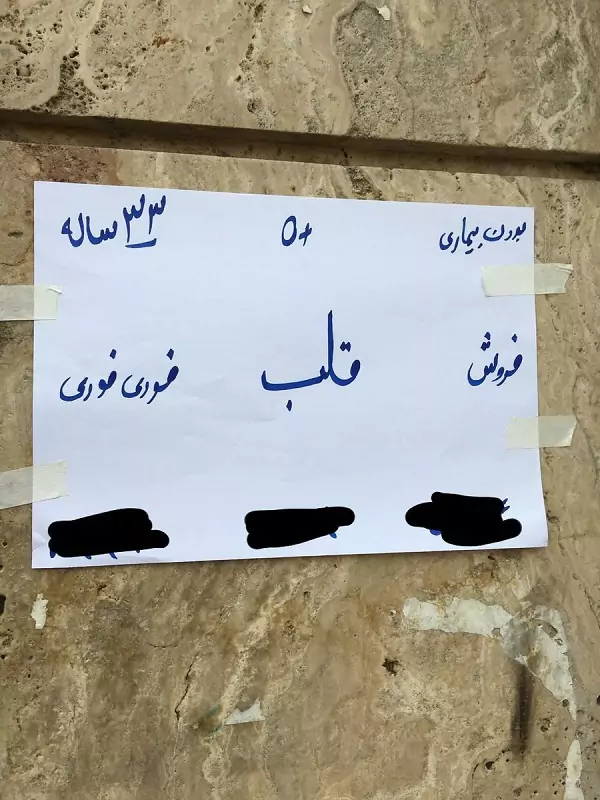 بدون بیماری +O ۳۳ ساله
فروش قلب فوری فوری